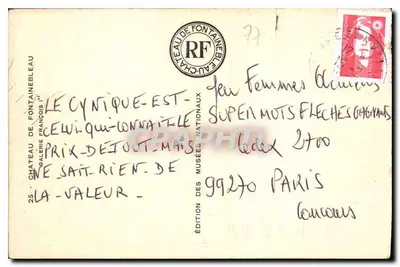 77
CHÂTEAU DE FONTAINEBLEAU
RF
25 - CHÂTEAU DE FONTAINEBLEAU
GALERIE FRANÇOIS Ier
ÉDITION DES MUSÉES NATIONAUX
LE CYNIQUE-EST-
CELUI-QUI-CONNAIT-LE
PRIX-DE TOUT-MAIS-
NE SAIT-RIEN-DE
LA-VALEUR-
Jeu Femmes
SUPER MOTS FLECHES GAGNANTS
Cedex 2700
99270 PARIS
Concours